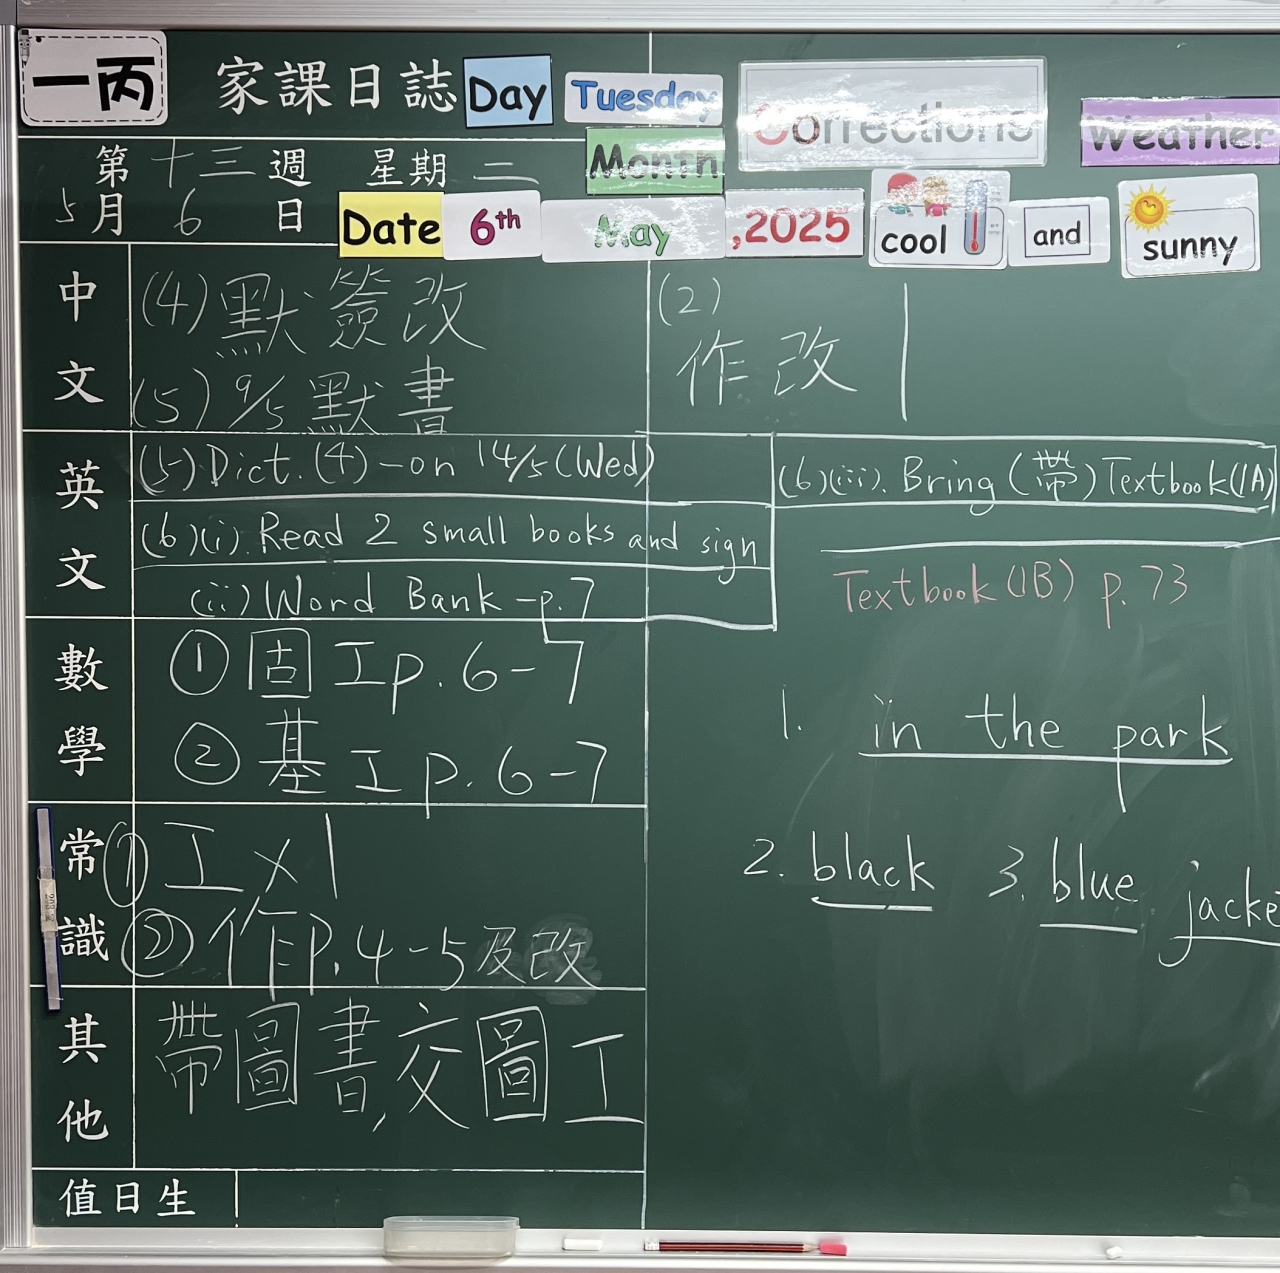 一丙 家課日誌 Day Tuesday Corrections Weather
Month
第十三週 星期二
5月6日 Date 6th May ,2025 cool and sunny
中文
(4)默簽改
(5)9/5默書
(2)
作改
英文
(5) Dict. (4) – on 14/5 (Wed)
(6)(i). Read 2 small books and sign
(ii) Word Bank – p. 7
(6)(iii). Bring (帶) Textbook (1A)
Textbook (1B) p. 73
數學
① 固工p. 6-7
② 基工p. 6-7
1. in the park
常識
① 工x1
② 作P. 4-5及改
2. black 3. blue jacke
其他
帶圖書,交圖工
值日生